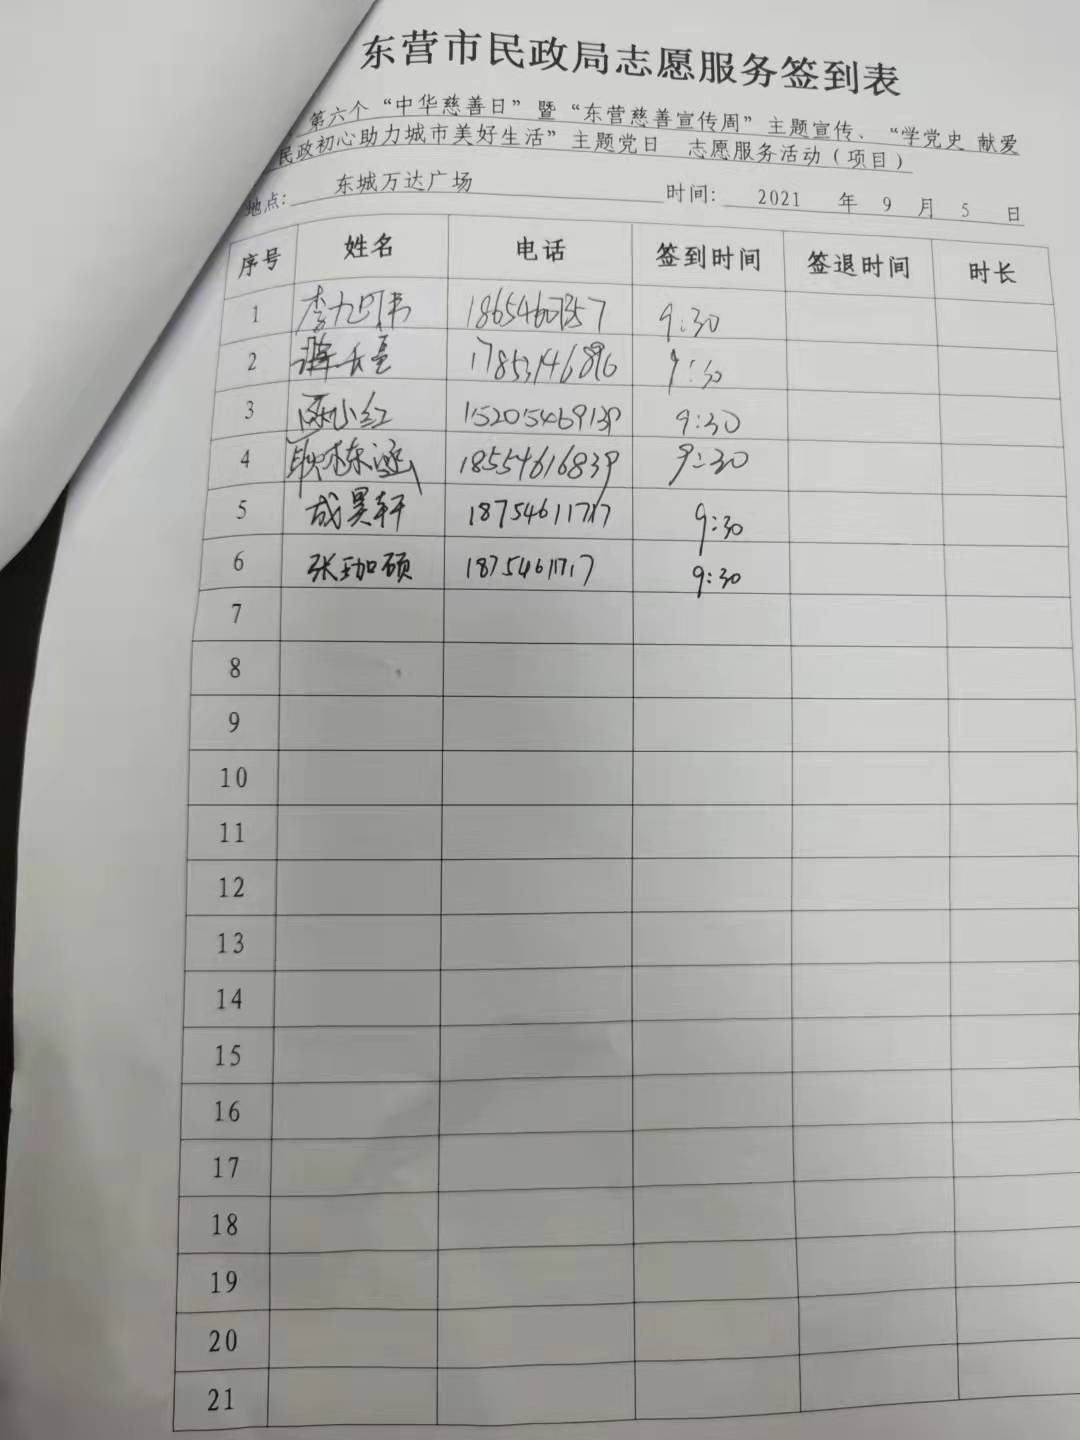 东营市民政局志愿服务签到表
第六个“中华慈善日”暨“东营慈善宣传周”主题宣传、“学党史 献爱
民政初心助力城市美好生活”主题党日 志愿服务活动（项目）
地点： 东城万达广场 时间： 2021 年 9 月 5 日
序号 姓名 电话 签到时间 签退时间 时长
1 9:30
2 9:30
3 小红 15205469139 9:30
4 耿栋涵 18554616839 9:30
5 成昊轩 18754611717 9:30
6 张珈硕 18754611717 9:30
7
8
9
10
11
12
13
14
15
16
17
18
19
20
21